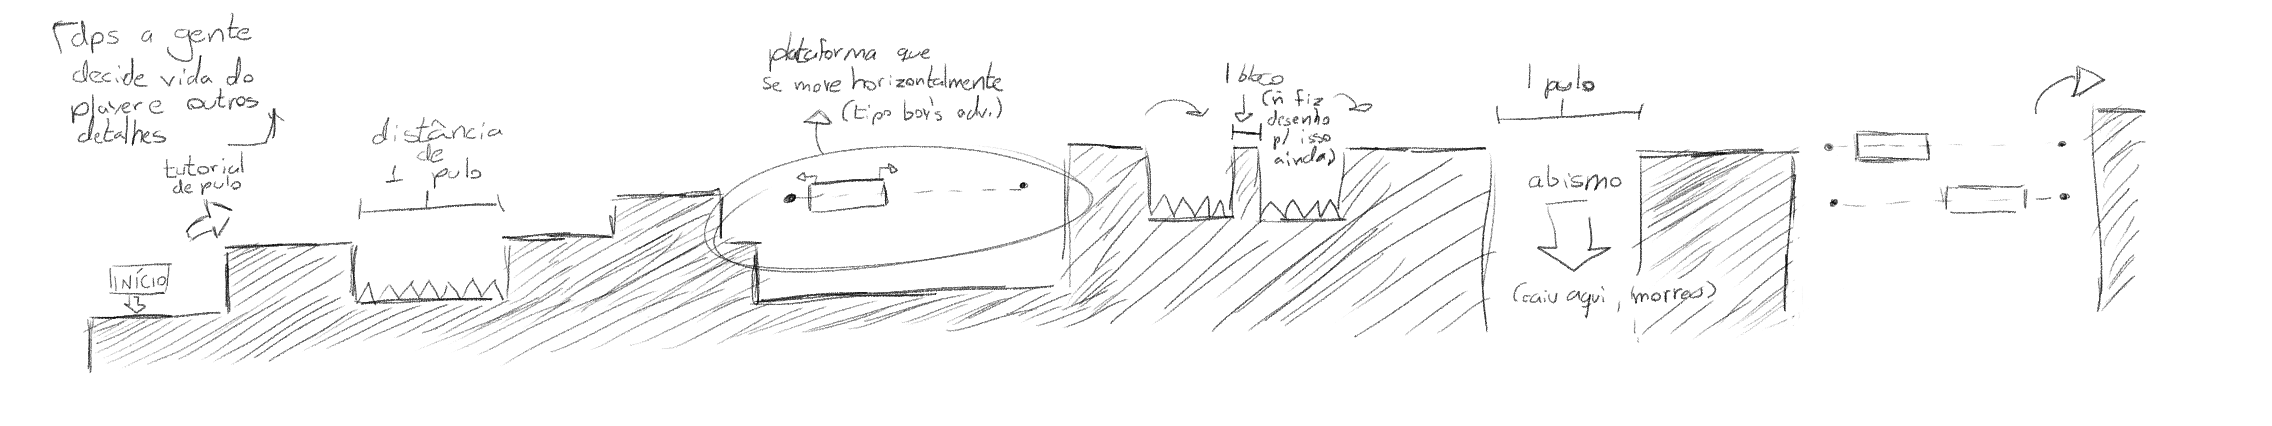 dps a gente
decide vida do
player e outros
detalhes
tutorial
de pulo
INÍCIO
distância
de
1 pulo
plataforma que
se move horizontalmente
(tipo boy's adv.)
1 bloco
(ñ fiz
desenho
p/ isso
ainda)
1 pulo
abismo
(caiu aqui, morreos)